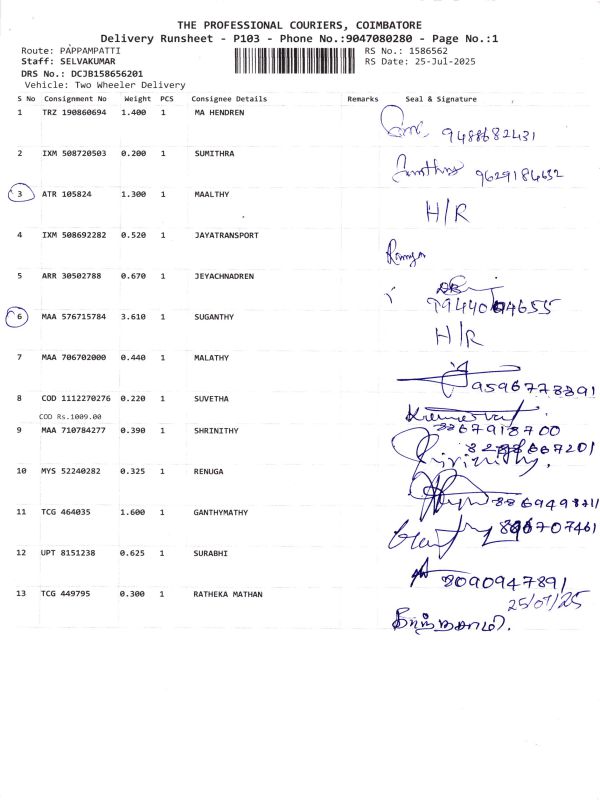 THE PROFESSIONAL COURIERS, COIMBATORE
Delivery Runsheet - P103 - Phone No.:9047080280 - Page No.:1
Route: PAPPAMPATTI RS No.: 1586562
Staff: SELVAKUMAR RS Date: 25-Jul-2025
DRS No.: DCJB158656201
Vehicle: Two Wheeler Delivery
S No Consignment No Weight PCS Consignee Details Remarks Seal & Signature
1 TRZ 190860694 1.400 1 MA HENDREN
9488682431
2 IXM 508720503 0.200 1 SUMITHRA
9629184632
3 ATR 105824 1.300 1 MAALTHY
H/R
4 IXM 508692282 0.520 1 JAYATRANSPORT
Ramya
5 ARR 30502788 0.670 1 JEYACHNADREN
6 MAA 576715784 3.610 1 SUGANTHY
H/R
7 MAA 706702000 0.440 1 MALATHY
9596778891
8 COD 1112270276 0.220 1 SUVETHA
COD Rs.1009.00
9 MAA 710784277 0.390 1 SHRINITHY
10 MYS 52240282 0.325 1 RENUGA
11 TCG 464035 1.600 1 GANTHYMATHY
12 UPT 8151238 0.625 1 SURABHI
8090947891
25/07/25
13 TCG 449795 0.300 1 RATHEKA MATHAN